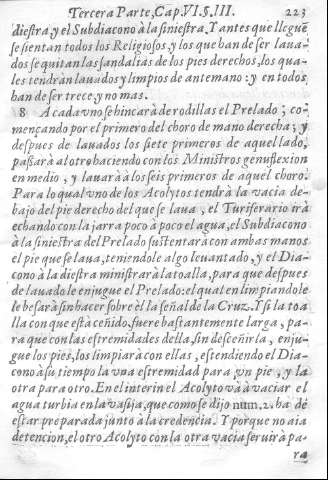 Tercera Parte, Cap. VI. §. III. 223
diestra, y el Subdiacono à la siniestra. Y antes que lleguē
se sientan todos los Religiosos, y los que han de ser laua-
dos se quitan las sandalias de los pies derechos, los qua-
les tendràn lauados y limpios de antemano: y en todos
han de ser trece, y no mas.
8 A cada vno se hincarà de rodillas el Prelado; co-
mençando por el primero del choro de mano derecha; y
despues de lauados los siete primeros de aquel lado,
passarà al otro haciendo con los Ministros genuflexion
en medio, y lauarà à los seis primeros de aquel choro.
Para lo qual vno de los Acolytos tendrà la vacia de-
bajo del pie derecho del que se laua, el Turiferario irà
echando con la jarra poco à poco el agua, el Subdiacono
à la siniestra del Prelado sustentarà con ambas manos
el pie que se laua, teniendole algo leuantado, y el Dia-
cono à la diestra ministrarà la toalla, para que despues
de lauado le enjugue el Prelado: el qual en limpiandole
le besarà sin hacer sobre èl la señal de la Cruz. Y si la toa
lla con que està ceñido, fuere bastantemente larga, pa-
ra que con las estremidades della, sin desceñirla, enju-
gue los pies, los limpiarà con ellas, estendiendo el Dia-
cono à su tiempo la vna estremidad para vn pie, y la
otra para otro. En el interin el Acolyto và à vaciar el
agua turbia en la vasija, que como se dijo num. 2. ha de
estar preparada junto à la credencia. Y porque no aia
detencion, el otro Acolyto con la otra vacia seruirà pa-
ra